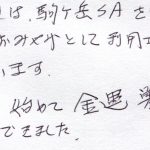 は、駒ヶ岳SAを
おみやげとして利用
います。
始めて 金運
できました。